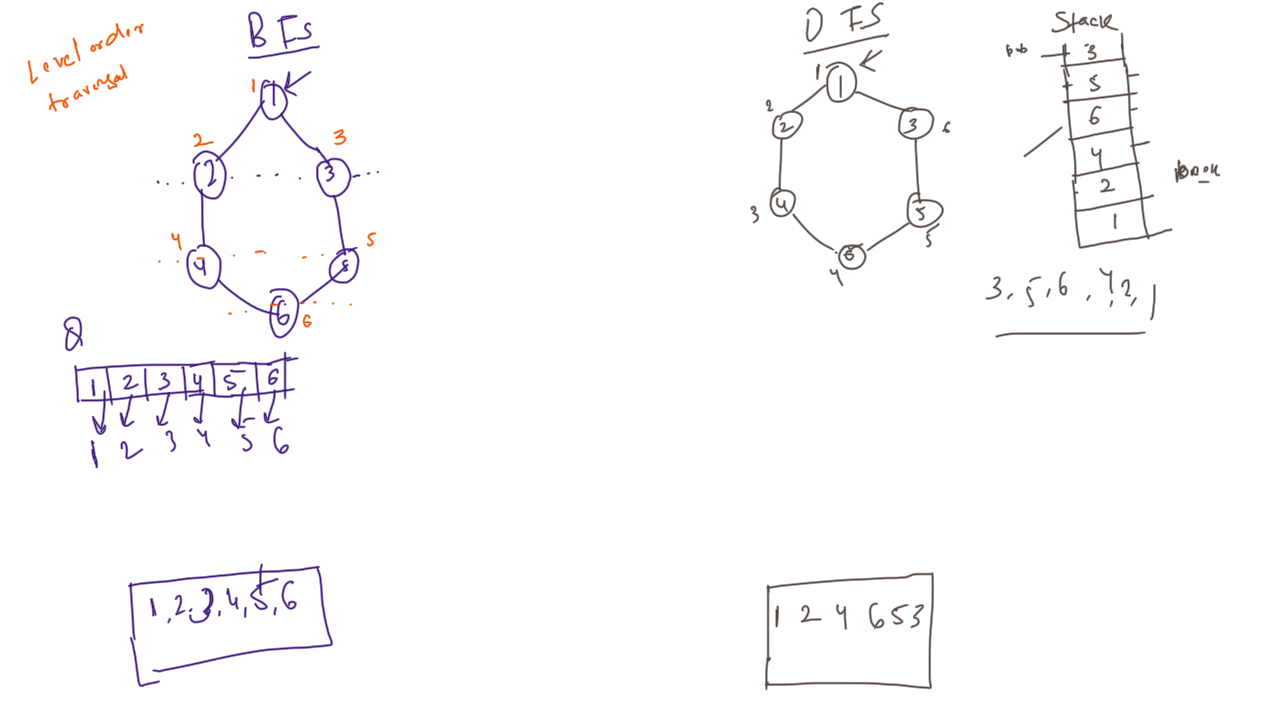 BFS
Level order
traversal
1
1
2
3
2
3
4
5
4
5
6
6
Q
1 2 3 4 5 6
1 2 3 4 5 6
1, 2, 3, 4, 5, 6
DFS
1
1
2
2
3
6
3
4
5
5
6
4
Stack
3
5
6
4
2
1
3, 5, 6, 4, 2, 1
1 2 4 6 5 3